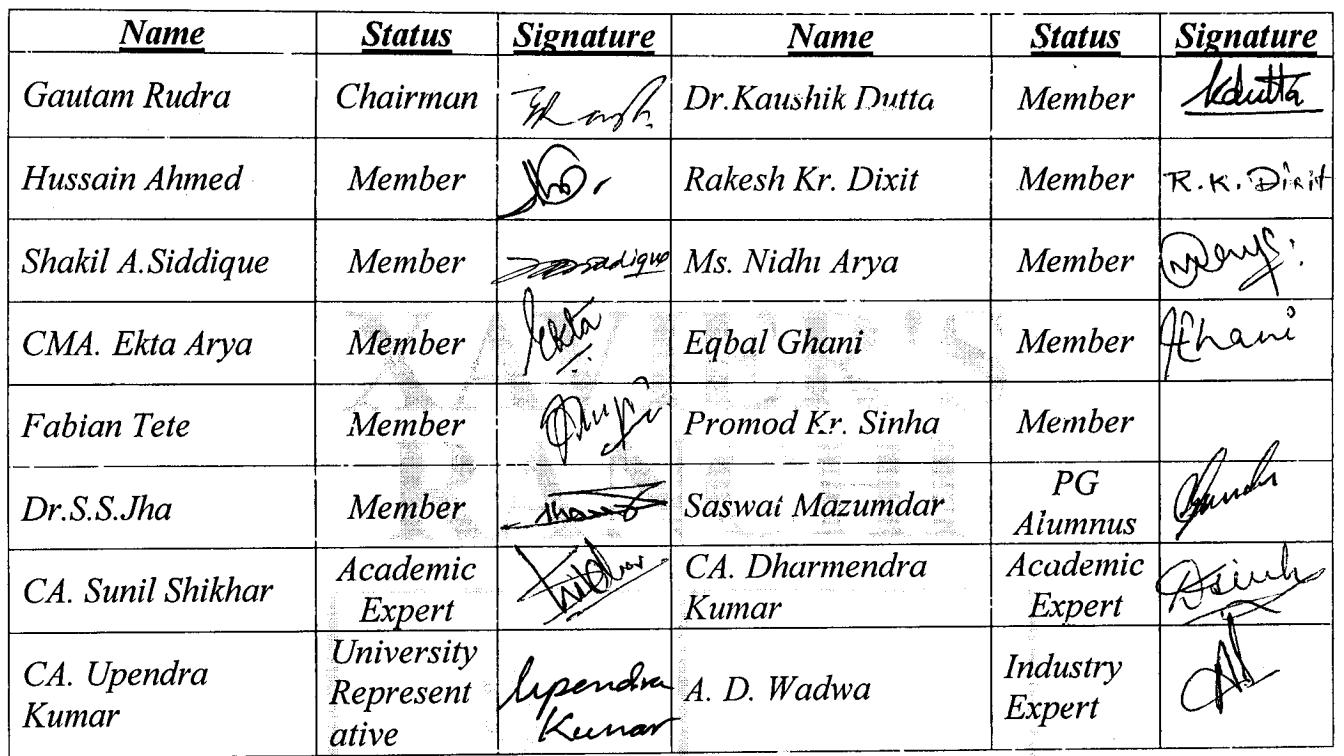 Name Status Signature Name Status Signature
Gautam Rudra Chairman Dr.Kaushik Dutta Member Kdutta
Hussain Ahmed Member Rakesh Kr. Dixit Member R.K. Dixit
Shakil A.Siddique Member Ms. Nidhi Arya Member
CMA. Ekta Arya Member Ekta Eqbal Ghani Member Ghani
Fabian Tete Member Promod Kr. Sinha Member
Dr.S.S.Jha Member Saswat Mazumdar PG
Alumnus
CA. Sunil Shikhar Academic
Expert
CA. Dharmendra
Kumar
Academic
Expert
CA. Upendra
Kumar
University
Represent
ative
Upendra
Kumar
A. D. Wadwa Industry
Expert
XAVIER'S
RANCHI